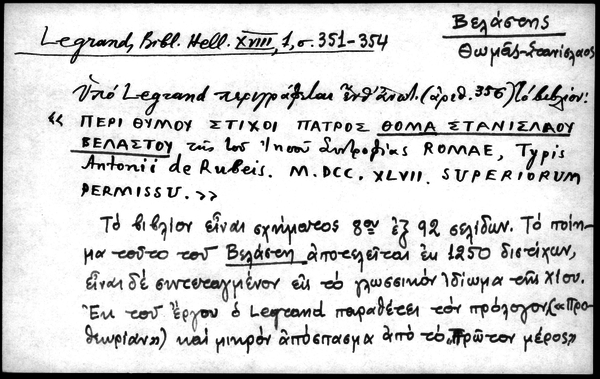 Βελάστης
Θωμᾶς-Στανίσλαος
Legrand, Bibl. Hell. XVIII, 1, σ. 351-354
Ὑπὸ Legrand περιγράφεται ἔνθ' ἀνωτ. (ἀριθ. 356) τὸ βιβλίον:
« ΠΕΡΙ ΘΥΜΟΥ ΣΤΙΧΟΙ ΠΑΤΡΟΣ ΘΟΜΑ ΣΤΑΝΙΣΛΑΟΥ
ΒΕΛΑΣΤΟΥ τῆς τοῦ Ἰησοῦ Συντροφίας ROMAE, Typis
Antonii de Rubeis. M.DCC. XLVII. SUPERIORUM
PERMISSU. »
Τὸ βιβλίον εἶναι σχήματος 8ου ἐξ 92 σελίδων. Τὸ ποίη-
μα τοῦτο τοῦ Βελάστη ἀποτελεῖται ἐκ 1250 διστίχων,
εἶναι δὲ συντεταγμένον εἰς τὸ γλωσσικὸν ἰδίωμα τῆς Χίου.
Ἐκ τοῦ ἔργου ὁ Legrand παραθέτει τὸν πρόλογον («Προ-
θεωρίαν») καὶ μικρὸν ἀπόσπασμα ἀπὸ τὸ «Πρῶτον μέρος»